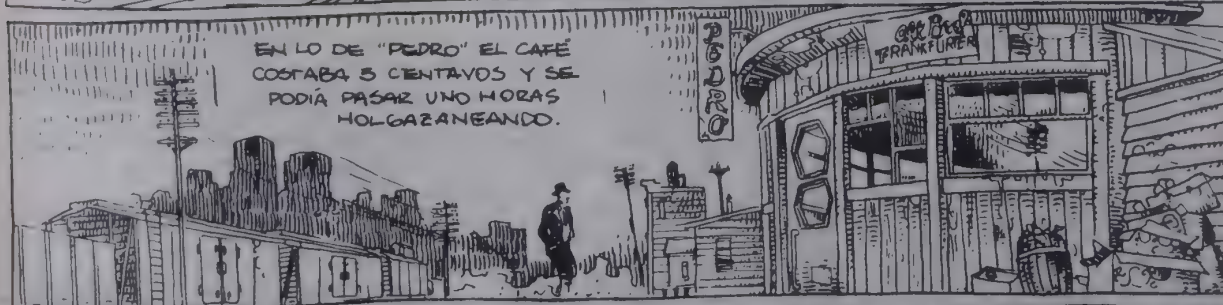 EN LO DE "PEDRO" EL CAFÉ
COSTABA 5 CENTAVOS Y SE
PODÍA PASAR UNO HORAS
HOLGAZANEANDO.
PEDRO
FRANKFURTER